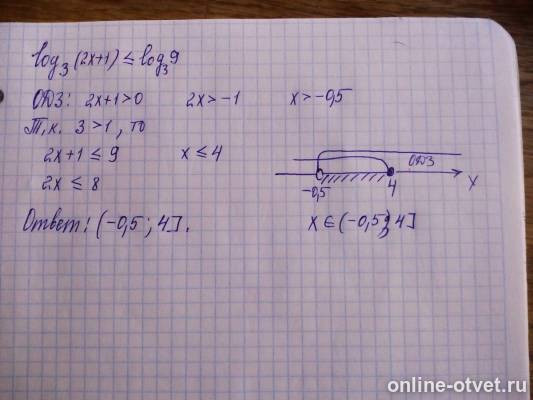 log₃(2x+1) ≤ log₃9
ОДЗ: 2x+1>0 2x>-1 x>-0,5
Т.к. 3>1, то
2x+1 ≤ 9 x ≤ 4
2x ≤ 8
ОДЗ
-0,5 4 x
Ответ: (-0,5; 4]. x ∈ (-0,5; 4]
online-otvet.ru